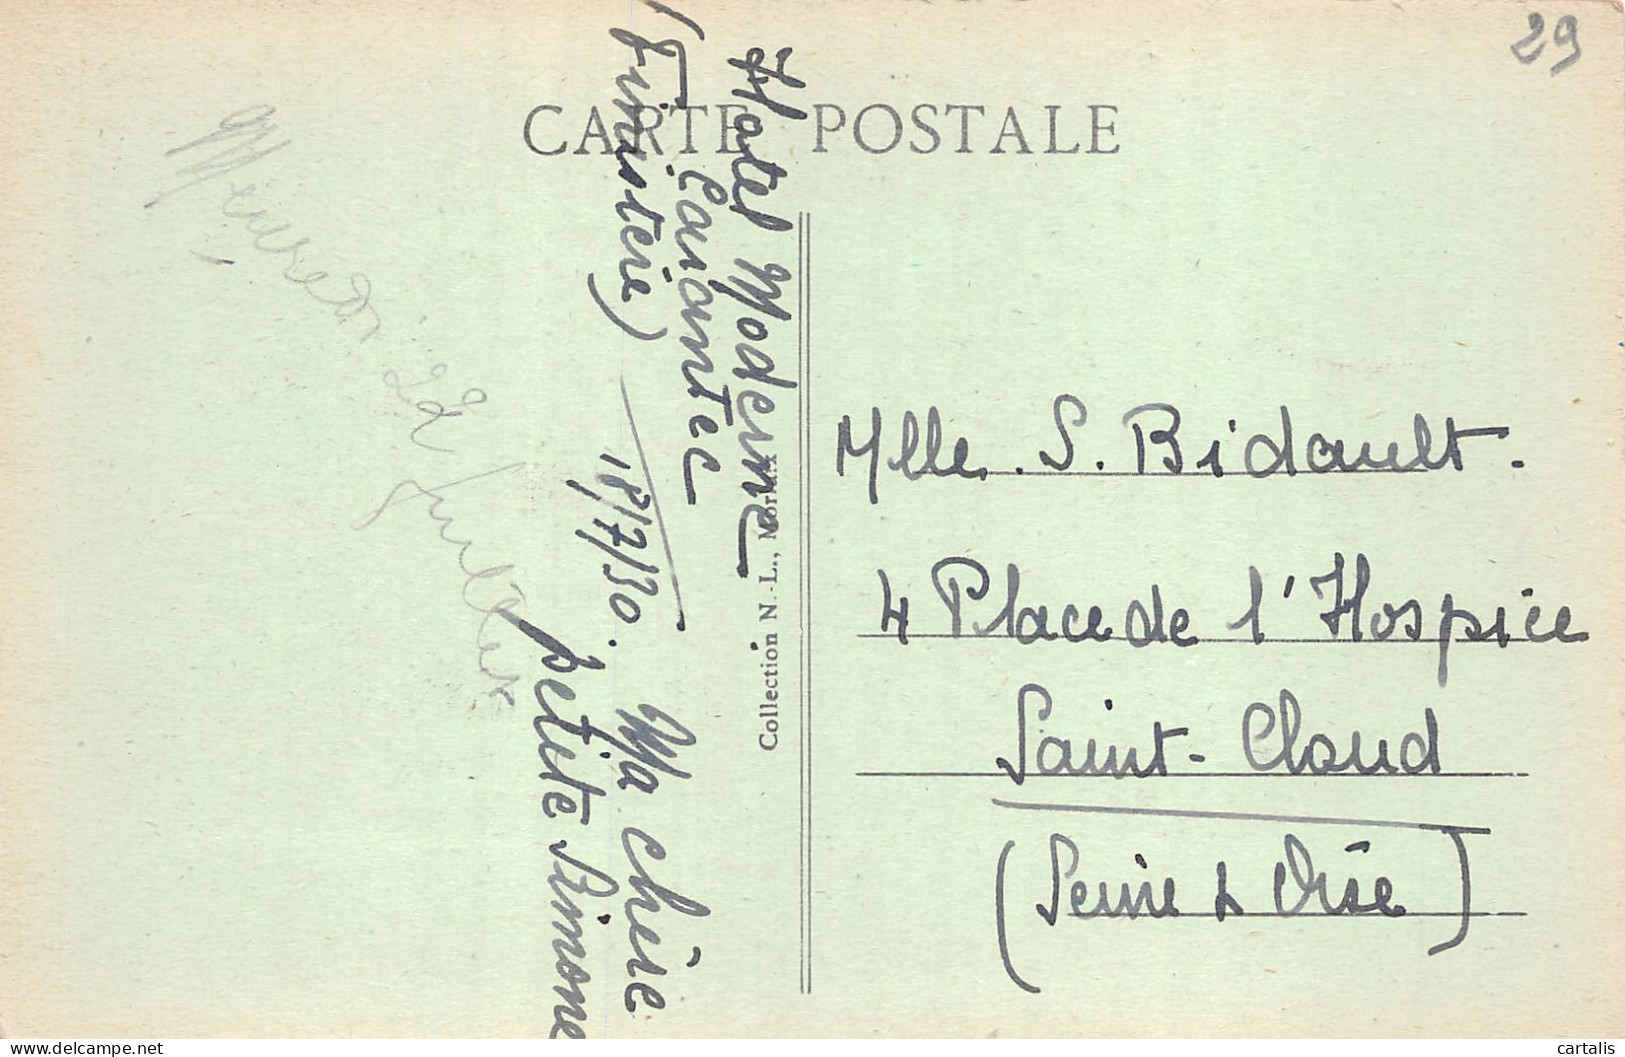 29
CARTE POSTALE
Hotel Moderne
Carantec
(Finistère)
18/7/30. Ma chère
petite Simone
Collection N.-L., Morlaix
22 Juillet
Mlle. S. Bidault.
4 Place de l'Hospice
Saint-Cloud
(Seine & Oise)
delcampe.net
cartalis